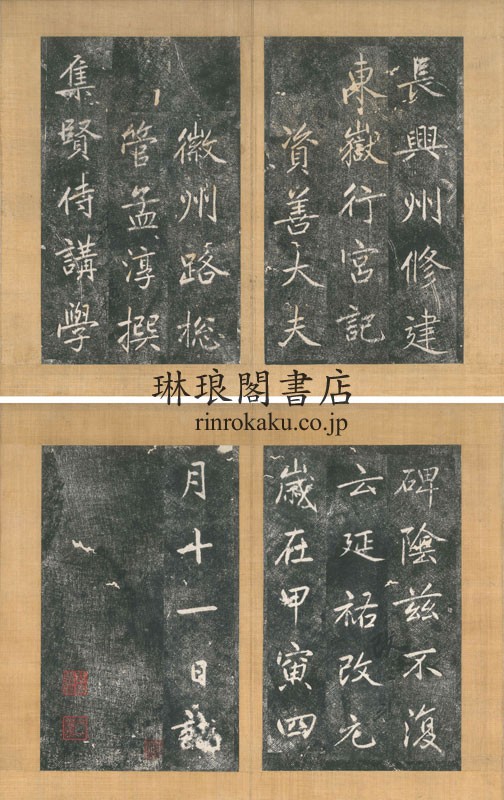 長興州修建
東嶽行宮記
資善大夫
徽州路総
管孟淳撰
集賢侍講學
琳琅閣書店
rinrokaku.co.jp
碑陰茲不復
云延祐改元
歲在甲寅四
月十一日